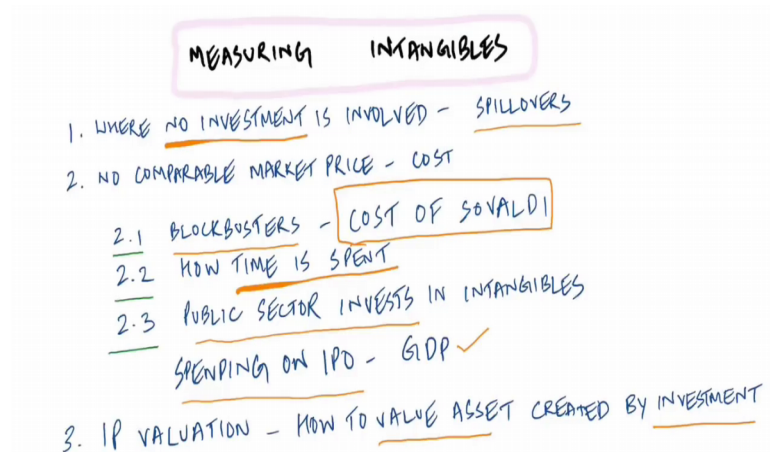 MEASURING INTANGIBLES
1. WHERE NO INVESTMENT IS INVOLVED - SPILLOVERS
2. NO COMPARABLE MARKET PRICE - COST
2.1 BLOCKBUSTERS - COST OF SOVALDI
2.2 HOW TIME IS SPENT
2.3 PUBLIC SECTOR INVESTS IN INTANGIBLES
SPENDING ON IPO - GDP ✓
3. IP VALUATION - HOW TO VALUE ASSET CREATED BY INVESTMENT